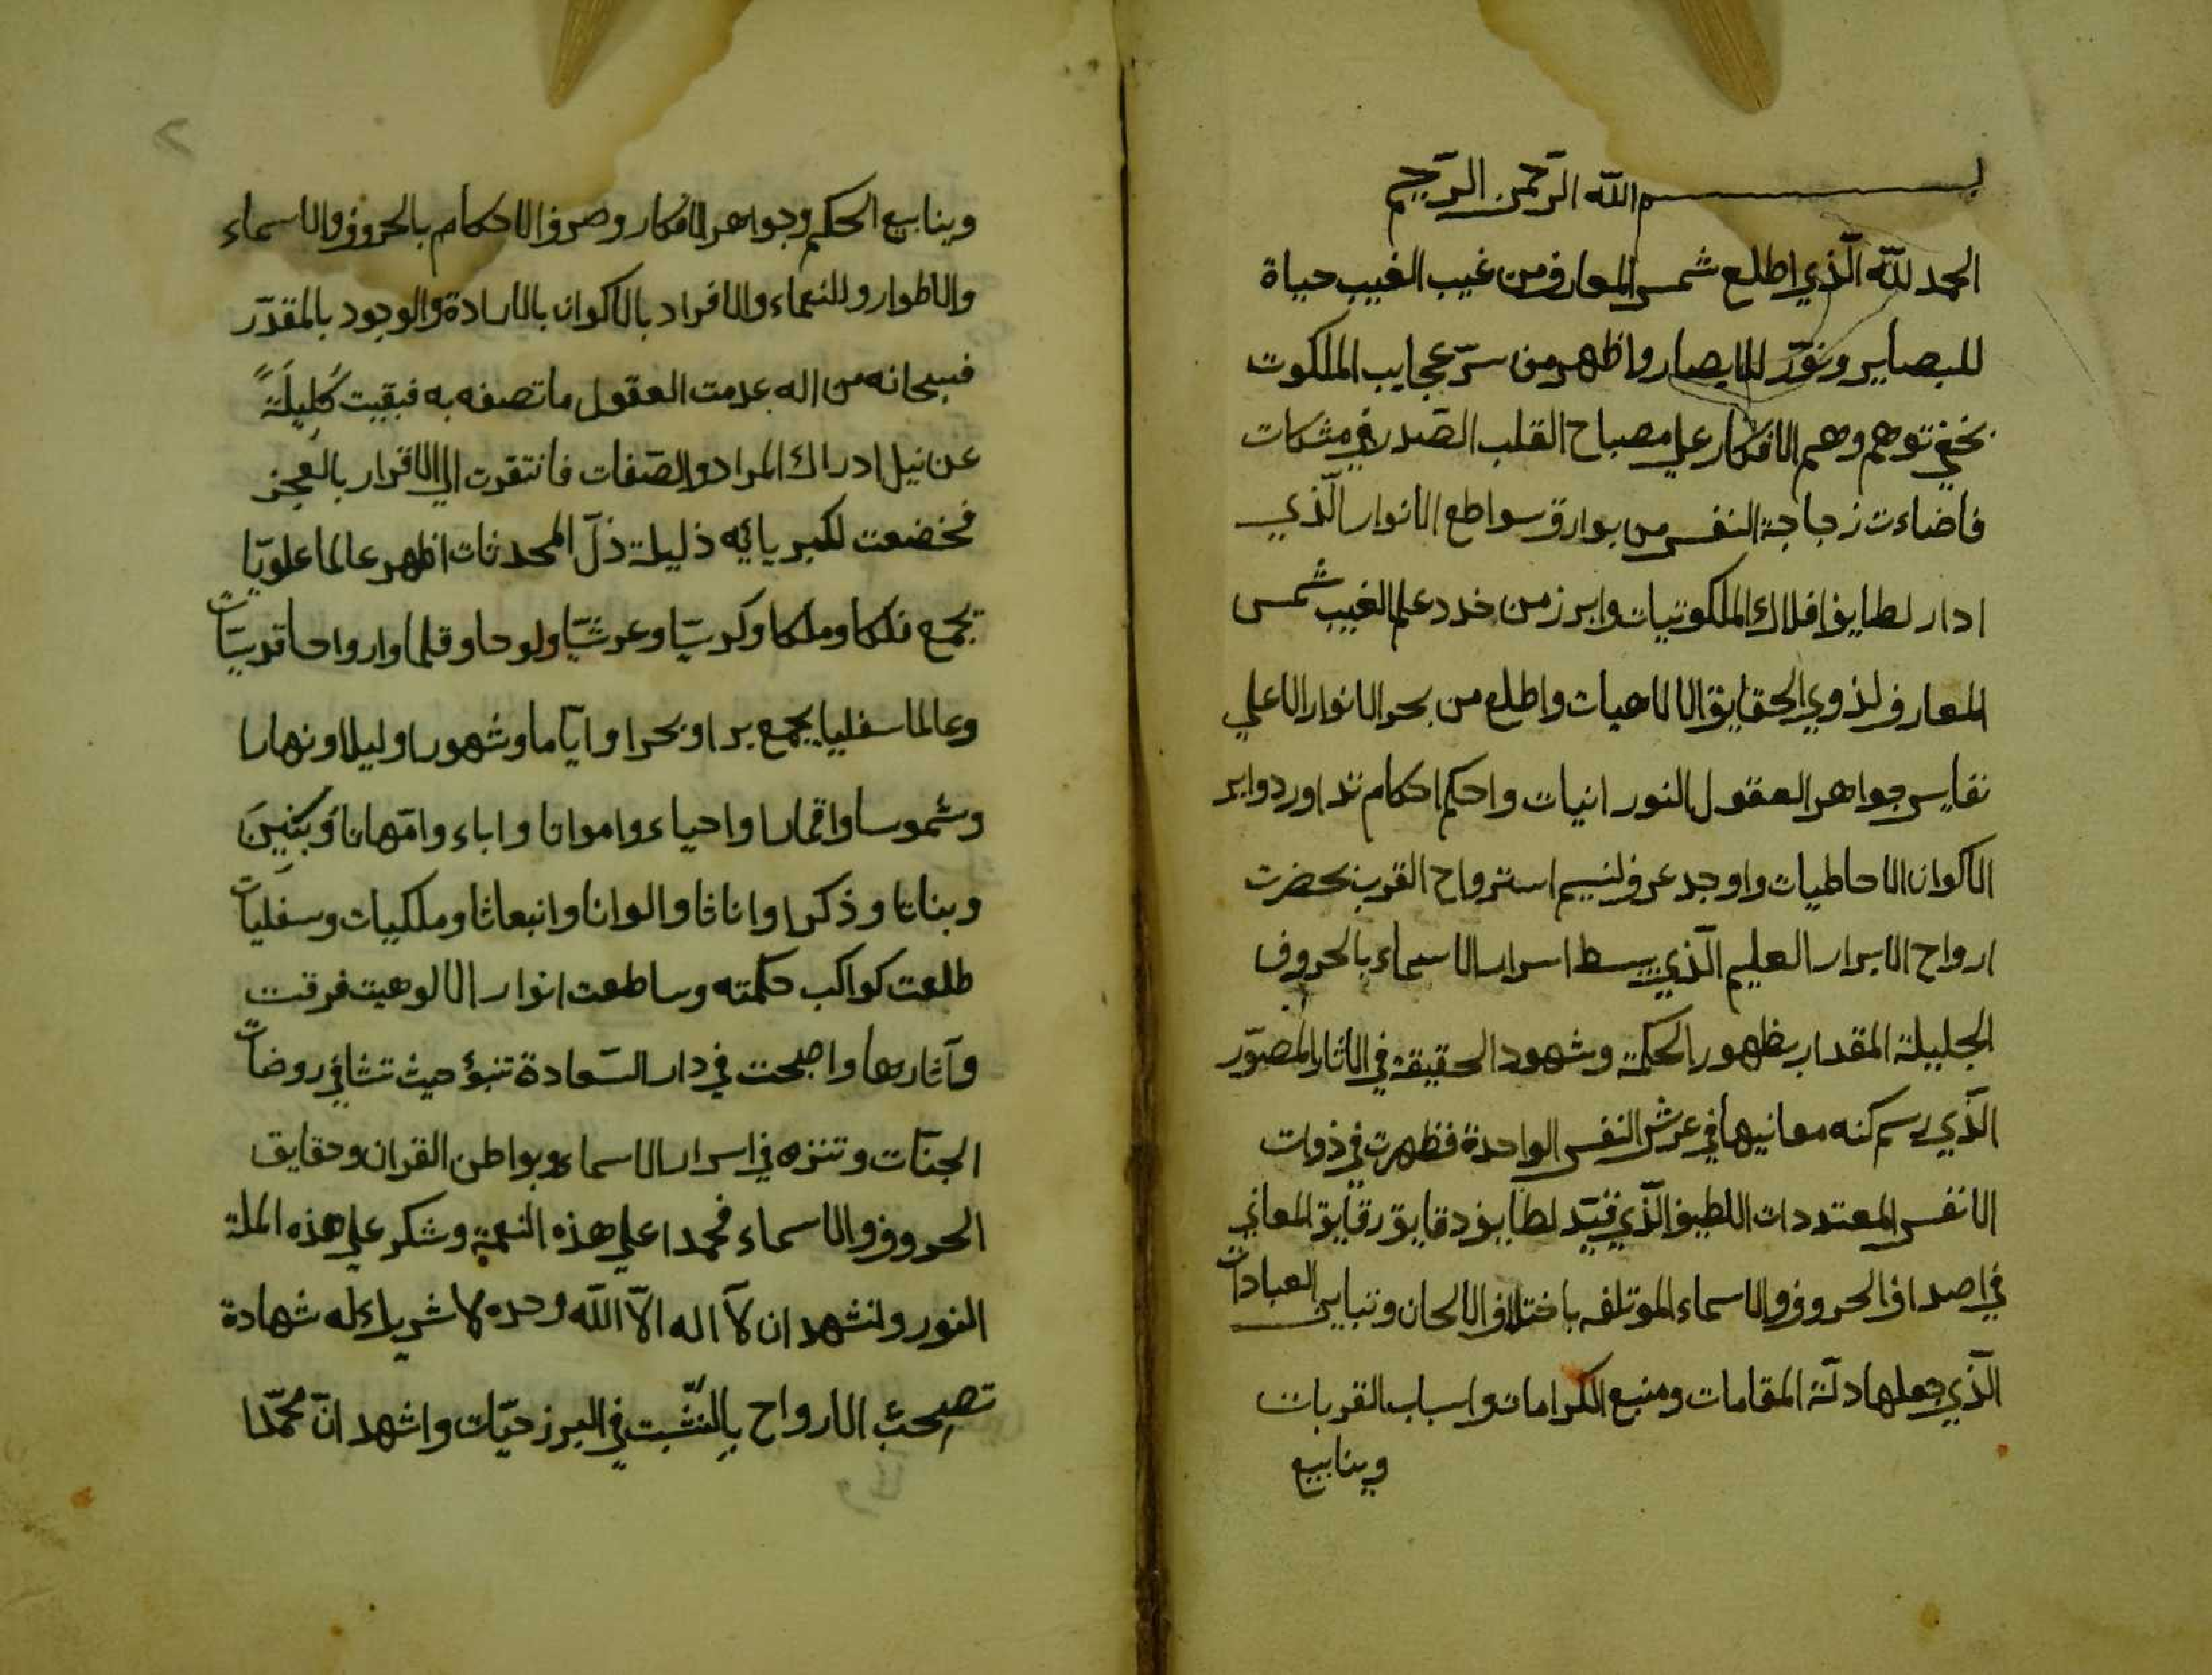 بسم الله الرحمن الرحيم
الحمد لله الّذي اطلع شمس المعارف من غيب الغيب حياة
للبصاير ونوّر للابصار واظهر من سرّ عجايب الملكوت
بخفي توهم وهم الافكار علي مصباح القلب الصّدر في مشكات
فاضاءت زجاجة النفس من بوارق سواطع الانوار الّذي
ادار لطايف افلاك الملكوتيات وابرز من خدد علم الغيب شمس
المعارف لذوي الحقايق الالاهيات واطلع من بحر الانوار الاعلي
نفايس جواهر العقول النورانيات واحكم احكام تداور دواير
الاكوان الاحاطيات واوجد عرف لنسيم استرواح القرب بحضرت
ارواح الابرار العليم الّذي بسط اسرار الاسماء بالحروف
الجليلة المقدار بظهور الحكمة وشهود الحقيقة في الاثار المصوّر
الّذي رسم كنه معانيها في عرش النفس الواحدة فظهرت في ذوات
الانفس المعتددات اللطيف الّذي قيّد لطايف دقايق رقايق المعاني
في اصداف الحروف والاسماء الموتلفه باختلاف الالحان وتباين العبادات
الّذي جعلها دلّة المقامات ومنبع الكرامات واسباب القربات
وينابيع
٢
وينابيع الحكم وجواهر الافكار وصرف الاحكام بالحروف والاسماء
والاطوار وللنعماء والافراد بالاكوان بالارادة والوجود بالمقدّر
فسبحانه من اله عدمت العقول ما تصفه به فبقيت كَلِيلَةً
عن نيل ادراك المراد والصّفات فانتقرت الي الاقرار بالعجز
فخضعت لكبريائه ذليلة ذلّ المحدثات اظهر عالما علويّا
يجمع فلكا وملكا وكرسيّا وعرشيّا ولوحا وقلما وارواحا قدسيّات
وعالما سفليا يجمع برا وبحرا وايّاما وشهورا وليلا ونهارا
وشموسا واقمارا واحياء وامواتا واباء وامّهاتا وبَنِينَ
وبناتا وذكرا واناثا والوانا وانبعاثا وملكيات وسفليات
طلعت كواكب حكمته وساطعت انوار الالوهيت فرقت
وآثارها واصبحت في دار السّعادة تتبؤ حيث تشا في روضات
الجنّات وتنزه في اسرار الاسماء وبواطن القران وحقايق
الحروف والاسماء فحمدا علي هذه النعمة وشكر علي هذه الملة
النور ونشهد ان لآ اله الاّ الله وحده لا شريك له شهادة
تصحب الارواح بالتّثبت في البرزحيّات واشهد انّ محمّدا